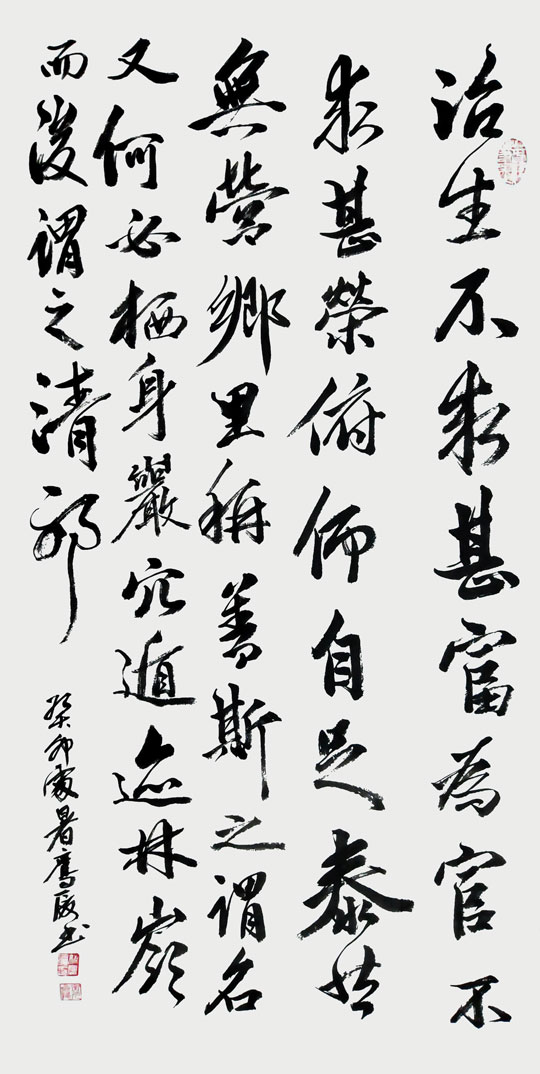 治生不求甚富為官不
求甚榮俯仰自足泰然
無營鄉里稱善斯之謂名
又何必栖身巖穴遁迹林嶺
而後謂之清耶
癸卯處暑鷹 书